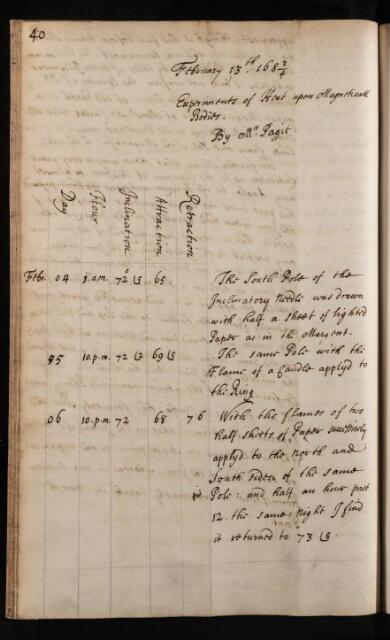 40
February 13th. 168 3/4
Experiments of Heat upon Magneticall
Bodies.
By Mr. Pagit.
Day Hour Inclination Attraction Retraction
Febr. 04 1.am. 72° 15 65.
The South Pole of the
Inclinatory Needle was drawn
with half a sheet of lighted
Paper as in the Margent.
05 10.p.m. 72 69
The same Pole with the
Flame of a Candle applyd to
the Ring
06 10.p.m 72 68 76
With the flames of two
half sheets of Paper successively
applyd to the North and
South sides of the same
Pole: and half an hour past
12. the same night I find
it returned to 73